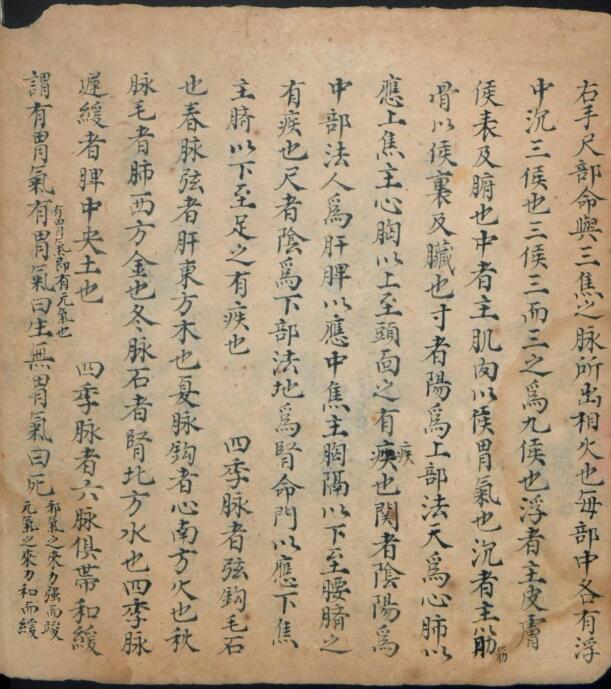 右手尺部命與三焦之脉所出相火也每部中各有浮
中沉三侯也三侯三而三之爲九侯也浮者主皮膚
侯表及腑也中者主肌肉以侯胃氣也沉者主筋筋
骨以侯裏及臟也寸者陽爲上部法天爲心肺以
應上焦主心胸以上至頭面之有疾疾也関者陰陽爲
中部法人爲肝脾以應中焦主胸隔以下至腰臍之
有疾也尺者陰爲下部法地爲腎命門以應下焦
主臍以下至足之有疾也 四季脉者弦鈎毛石
也春脉弦者肝東方木也夏脉鈎者心南方火也秋
脉毛者肺西方金也冬脉石者腎北方水也四季脉
遲緩者脾中央土也 四季脉者六脉俱帶和緩
謂有胃氣有胃氣曰生無胃氣曰死
有胃氣即有元氣也
邪氣之來力强而峻
元氣之來力和而緩